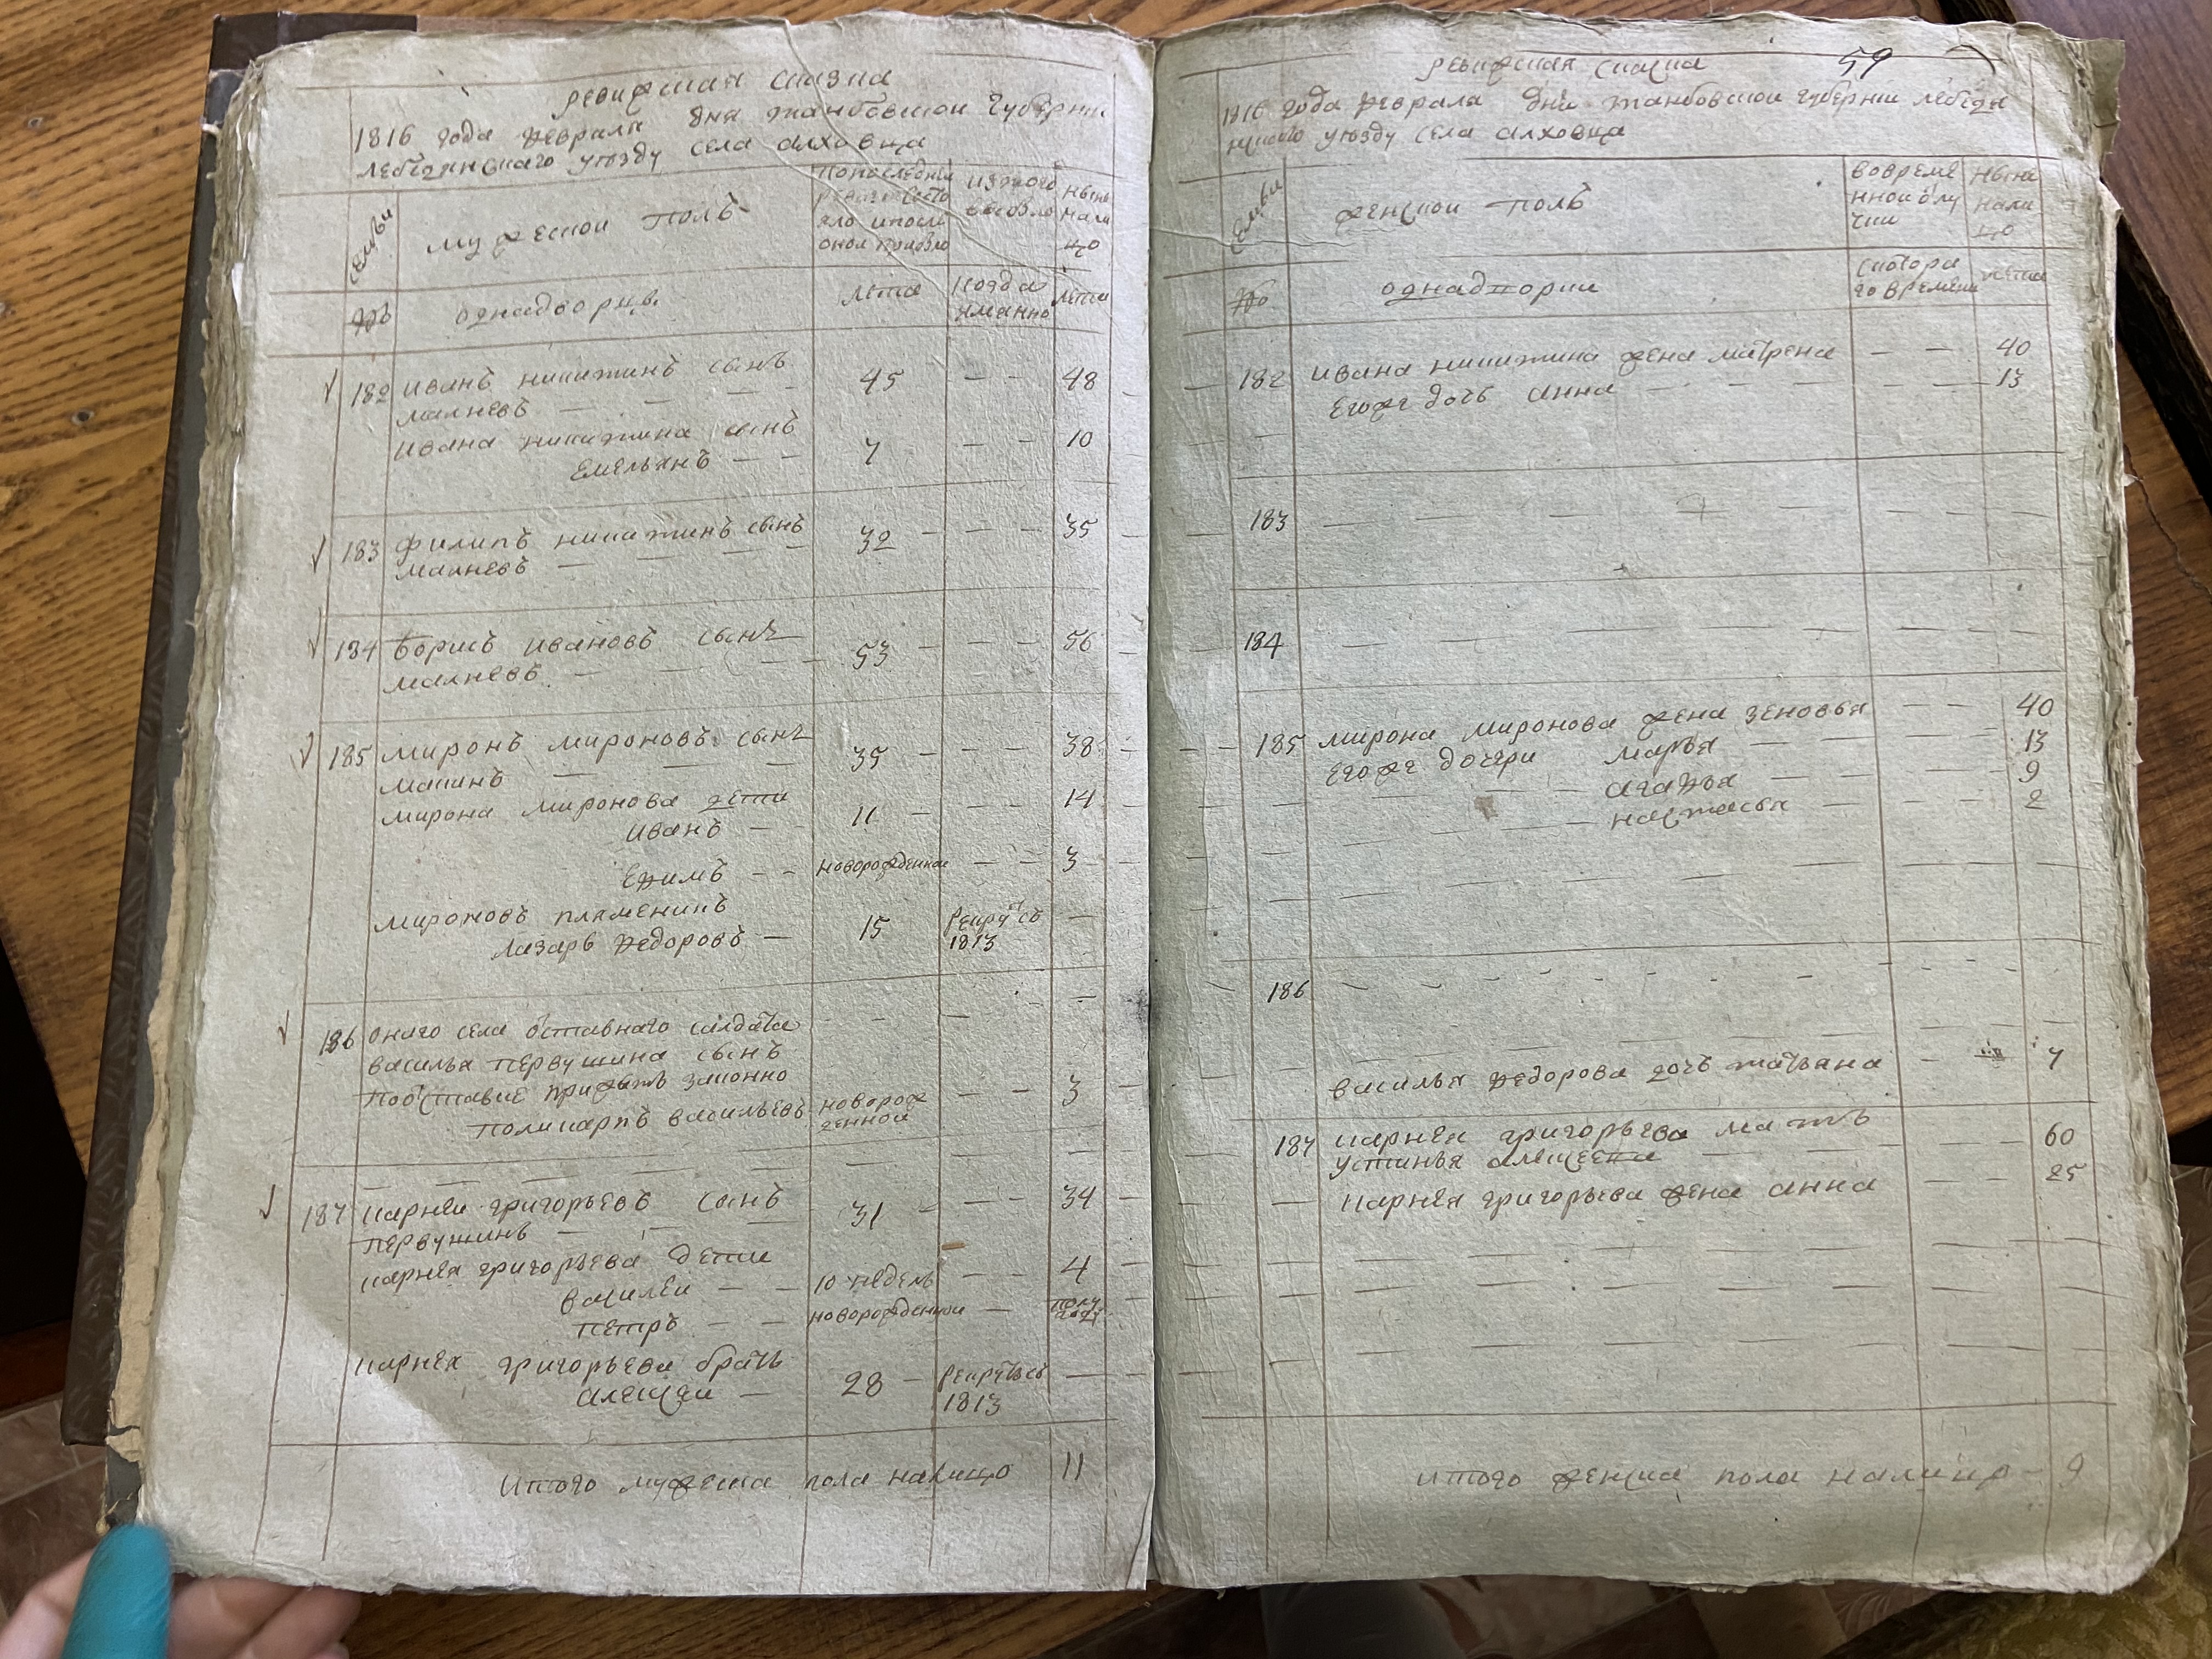 ревизская сказка
1816 года февраля дня танбовской губернии
лебедянского уезду села алховца
семьи
мужеской полъ
по последней
ревизии состо
яло и после
оной прибыло
из того
выбыло
ныне
нали
цо
№
однадворцы
лета
когда
имянно
лета
182 иванъ никитинъ сынъ
малневъ — — — 45 — — 48
ивана никитина сынъ
емельянъ — — 7 — — 10
183 филипъ никитинъ сынъ
малневъ — — — 32 — — 35
184 борисъ ивановъ сынъ
малневъ — — — 53 — — 56
185 миронъ мироновъ сынъ
— — — 35 — — 38
мирона миронова дети
иванъ — — 11 — — 14
ефимъ — — новорожденной — — 3
мироновъ племеникъ
лазарь федоровъ — 15 рекрутъ съ 1813 —
186 оного села отставного салдата
василья первушина сынъ
по отставке прижитъ законно
поликарпъ васильевъ новорож
денной — — 3
187 карней григорьевъ сынъ
первушинъ — — — 31 — — 34
карнея григорьева дети
василей — — 10 недель — — 4
петръ — — новорожденной — полу
года
карнея григорьева братъ
алексей — 28 — рекрутъ съ
1813 —
итого мужеска пола налицо 11
ревизская сказка 59
1816 года февраля дня танбовской губернии лебедя
нского уезду села алховца
семьи
женской полъ
во време
нной отлу
чки
ныне
нали
цо
№
однадворки
с котора
го времени
лета
182 ивана никитина жена матрена — — 40
егож дочь анна — — — — 13
183 — — — —
184 — — — —
185 мирона миронова жена зеновья — — 40
егож дочери марья — — 13
агафья — — 9
настасья — — 2
186 — — — —
василья федорова дочь татьяна — 7
187 карнея григорьева мать
устинья алексеева — — 60
— карнея григорьева жена анна — — 25
итого женска пола налицо — 9